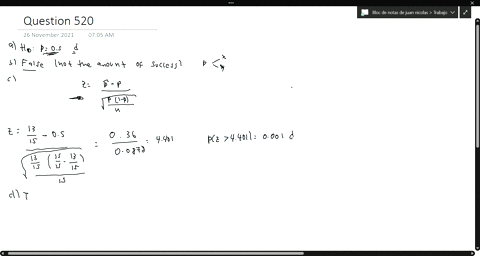 Question 520
26 November 2021 07:05 AM
Bloc de notas de juan nicolas > Trabajo
a) Ho: p=0.5 d
b) False (not the amount of success) p < x
c)
z = p̂ - p / √(p(1-p)/n)
z = 13/15 - 0.5 / √(13/15 (15/15 - 13/15)/15) = 0.36/0.0878 = 4.401 p(z > 4.401) = 0.001 d
d) T